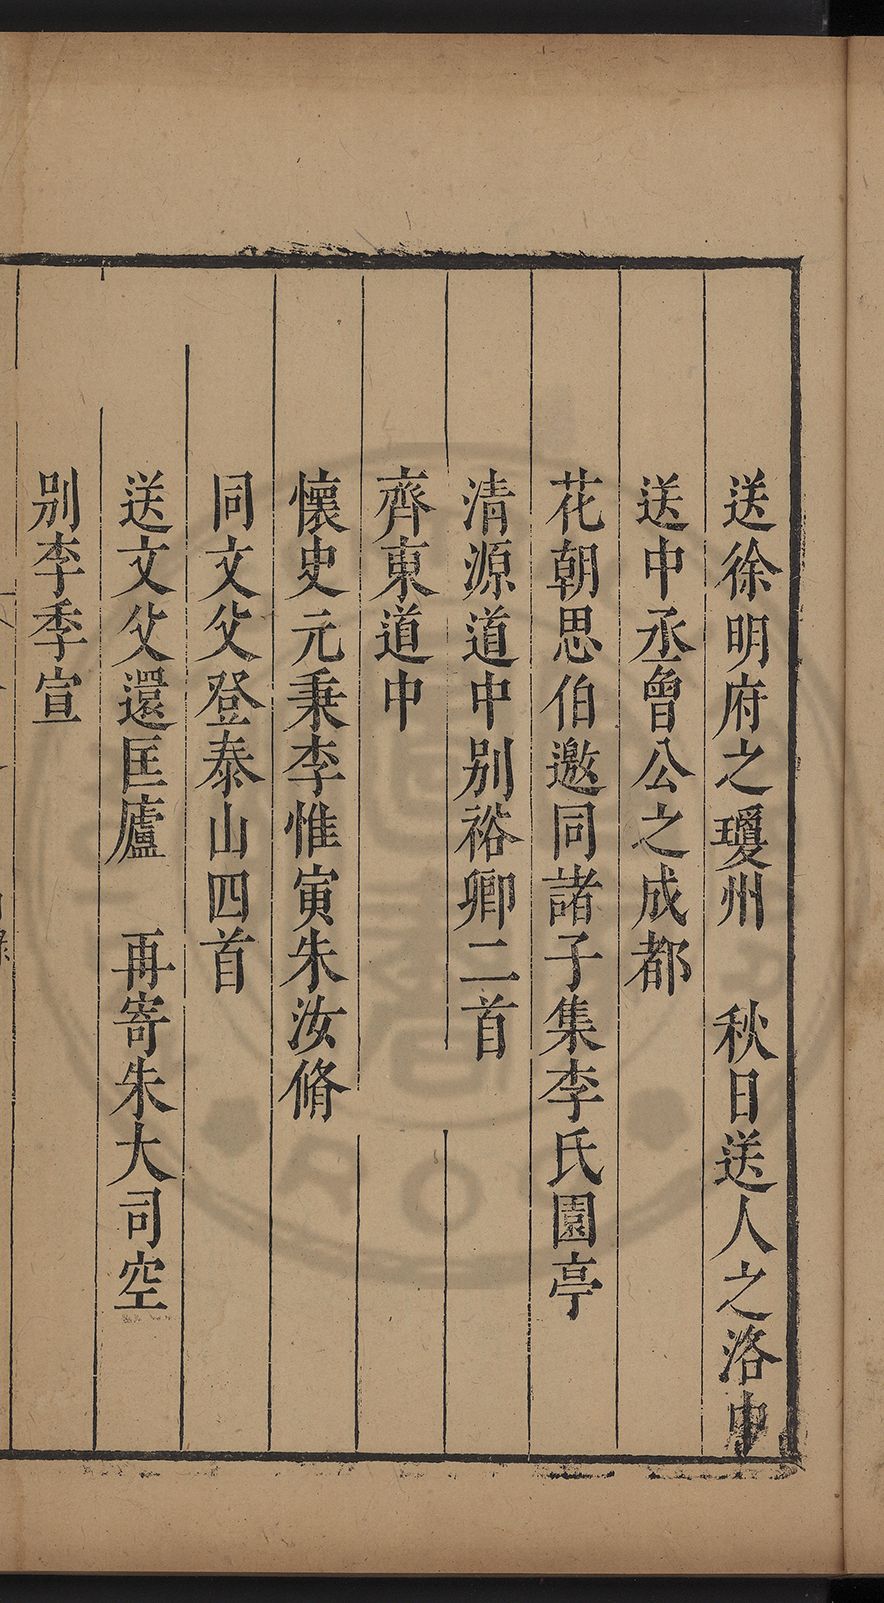 送徐明府之瓊州　秋日送人之洛中
送中丞曾公之成都
花朝思伯邀同諸子集李氏園亭
清源道中別裕卿二首
齊東道中
懷史元秉李惟寅朱汝脩
同文父登泰山四首
送文父還匡廬　再寄朱大司空
別李季宣